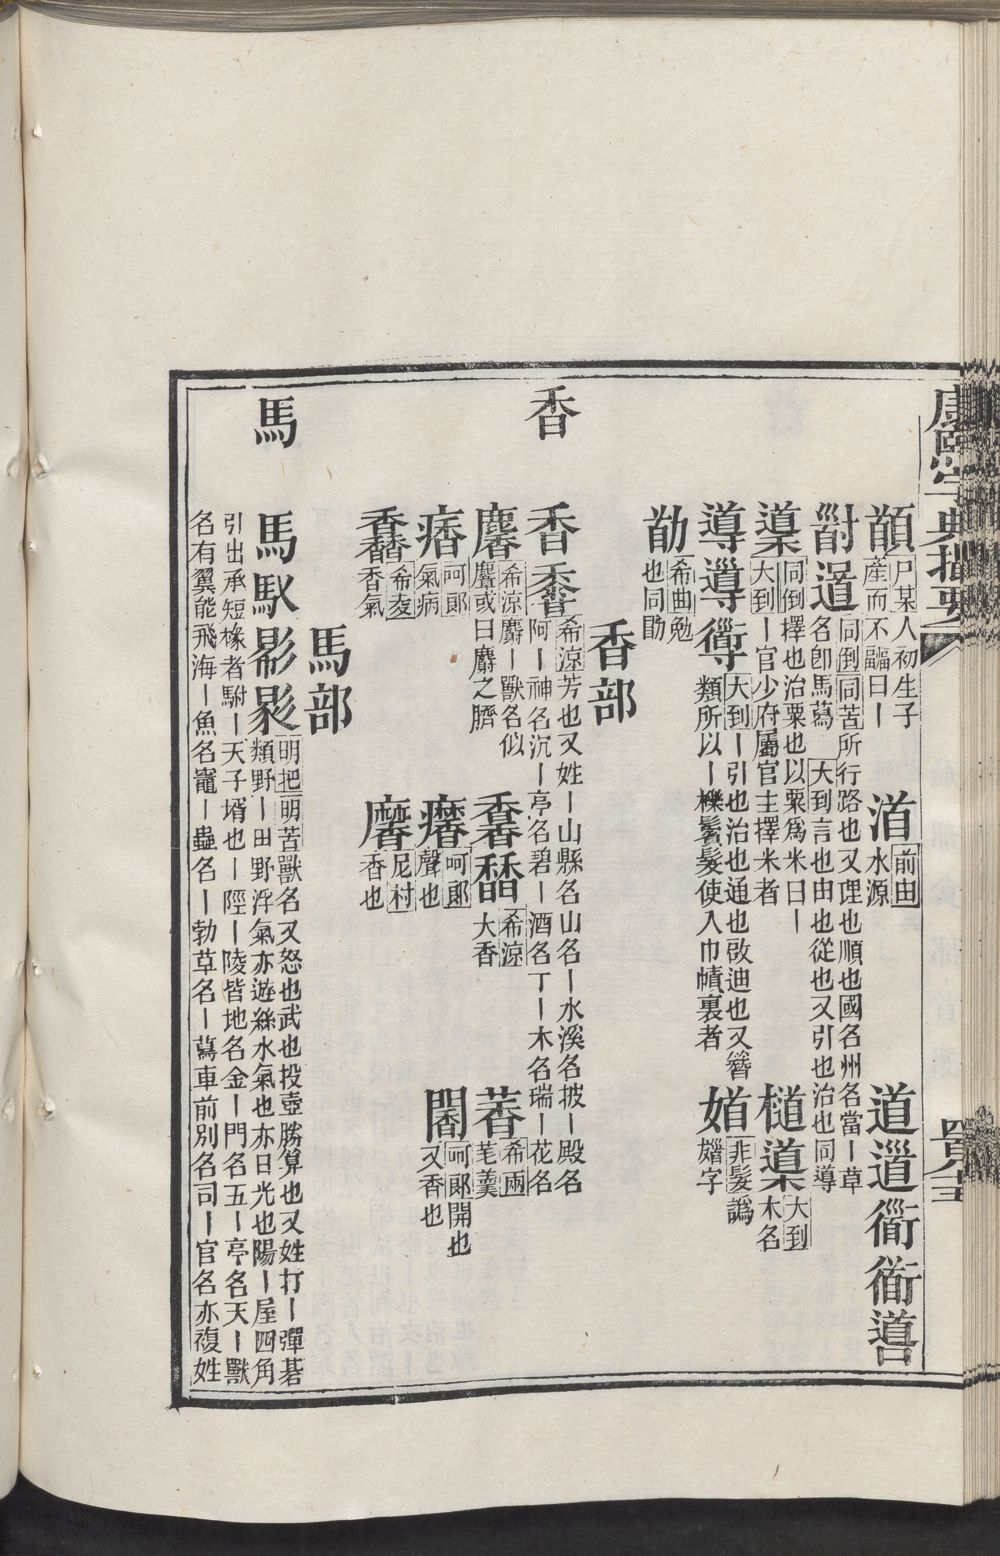 康熙字典撮要
尸某人初生子
產而不䨱曰丨
渞
前由
水源
道
同倒同苦所行路也又理也順也國名州名當丨草
名卽馬蔿 大到言也由也從也又引也治也同導
同倒擇也治粟也以粟爲米曰丨
大到丨官少府屬官主擇米者
大到
木名
導
大到丨引也治也通也啟迪也又簪
類所以丨櫟鬢髮使入巾幘裏者
非髮譌
字
希曲勉
也同勖
香部
香
香
希涼芳也又姓丨山縣名山名丨水溪名披丨殿名
阿丨神名沉丨亭名碧丨酒名丁丨木名瑞丨花名
希涼麝丨獸名似
麞或曰麝之臍
希涼
大香
萫
希兩
芼羹
呵郎
氣病
呵郎
聲也
呵郎開也
又香也
香氣
尼村
香也
馬部
馬
馬
明把明苦獸名又怒也武也投壺勝算也又姓打丨彈碁
類野丨田野浮氣亦遊絲水氣也亦日光也陽丨屋四角
引出承短椽者駙丨天子壻也丨陘丨陵皆地名金丨門名五丨亭名天丨獸
名有翼能飛海丨魚名竈丨蟲名丨勃草名丨藒車前別名司丨官名亦複姓